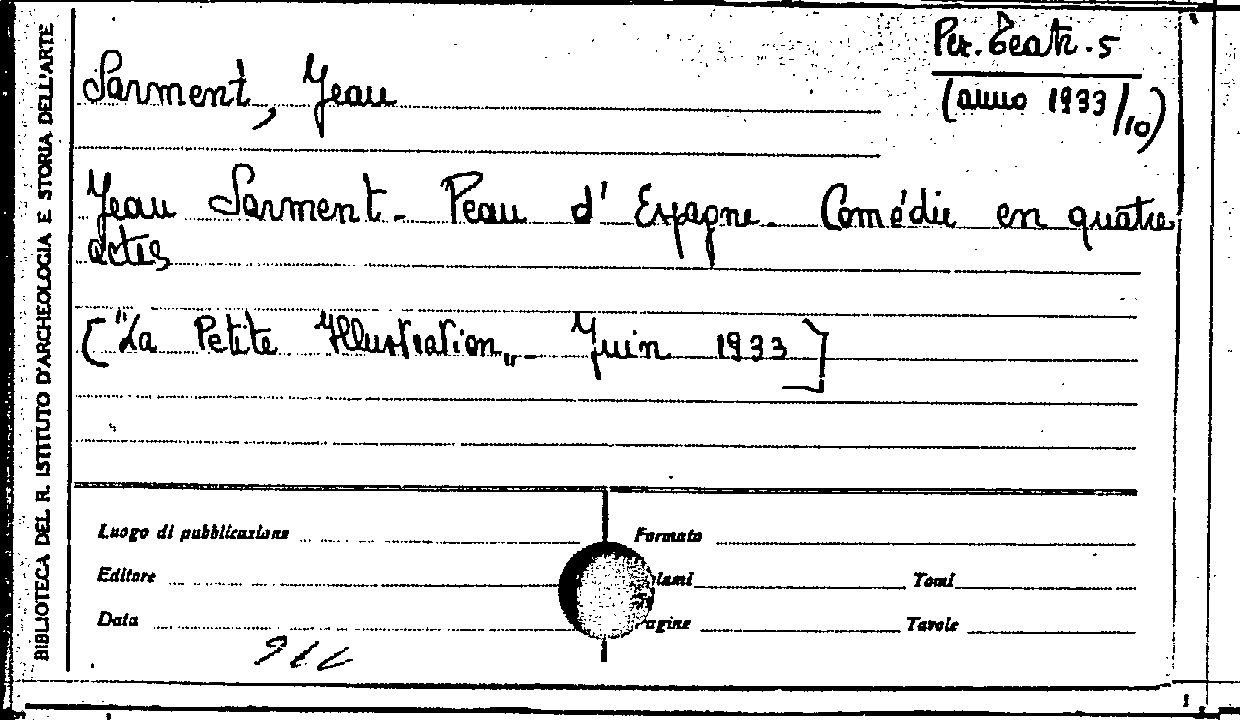 Per. Teatr. 5
(anno 1933/10)
Sarment, Jean
Jean Sarment. Peau d'Espagne. Comédie en quatre
actes
["La Petite Illustration„ - Juin 1933]
BIBLIOTECA DEL R. ISTITUTO D'ARCHEOLOGIA E STORIA DELL'ARTE
Luogo di pubblicazione
Formato
Editore
Tomi
Data
Tavole